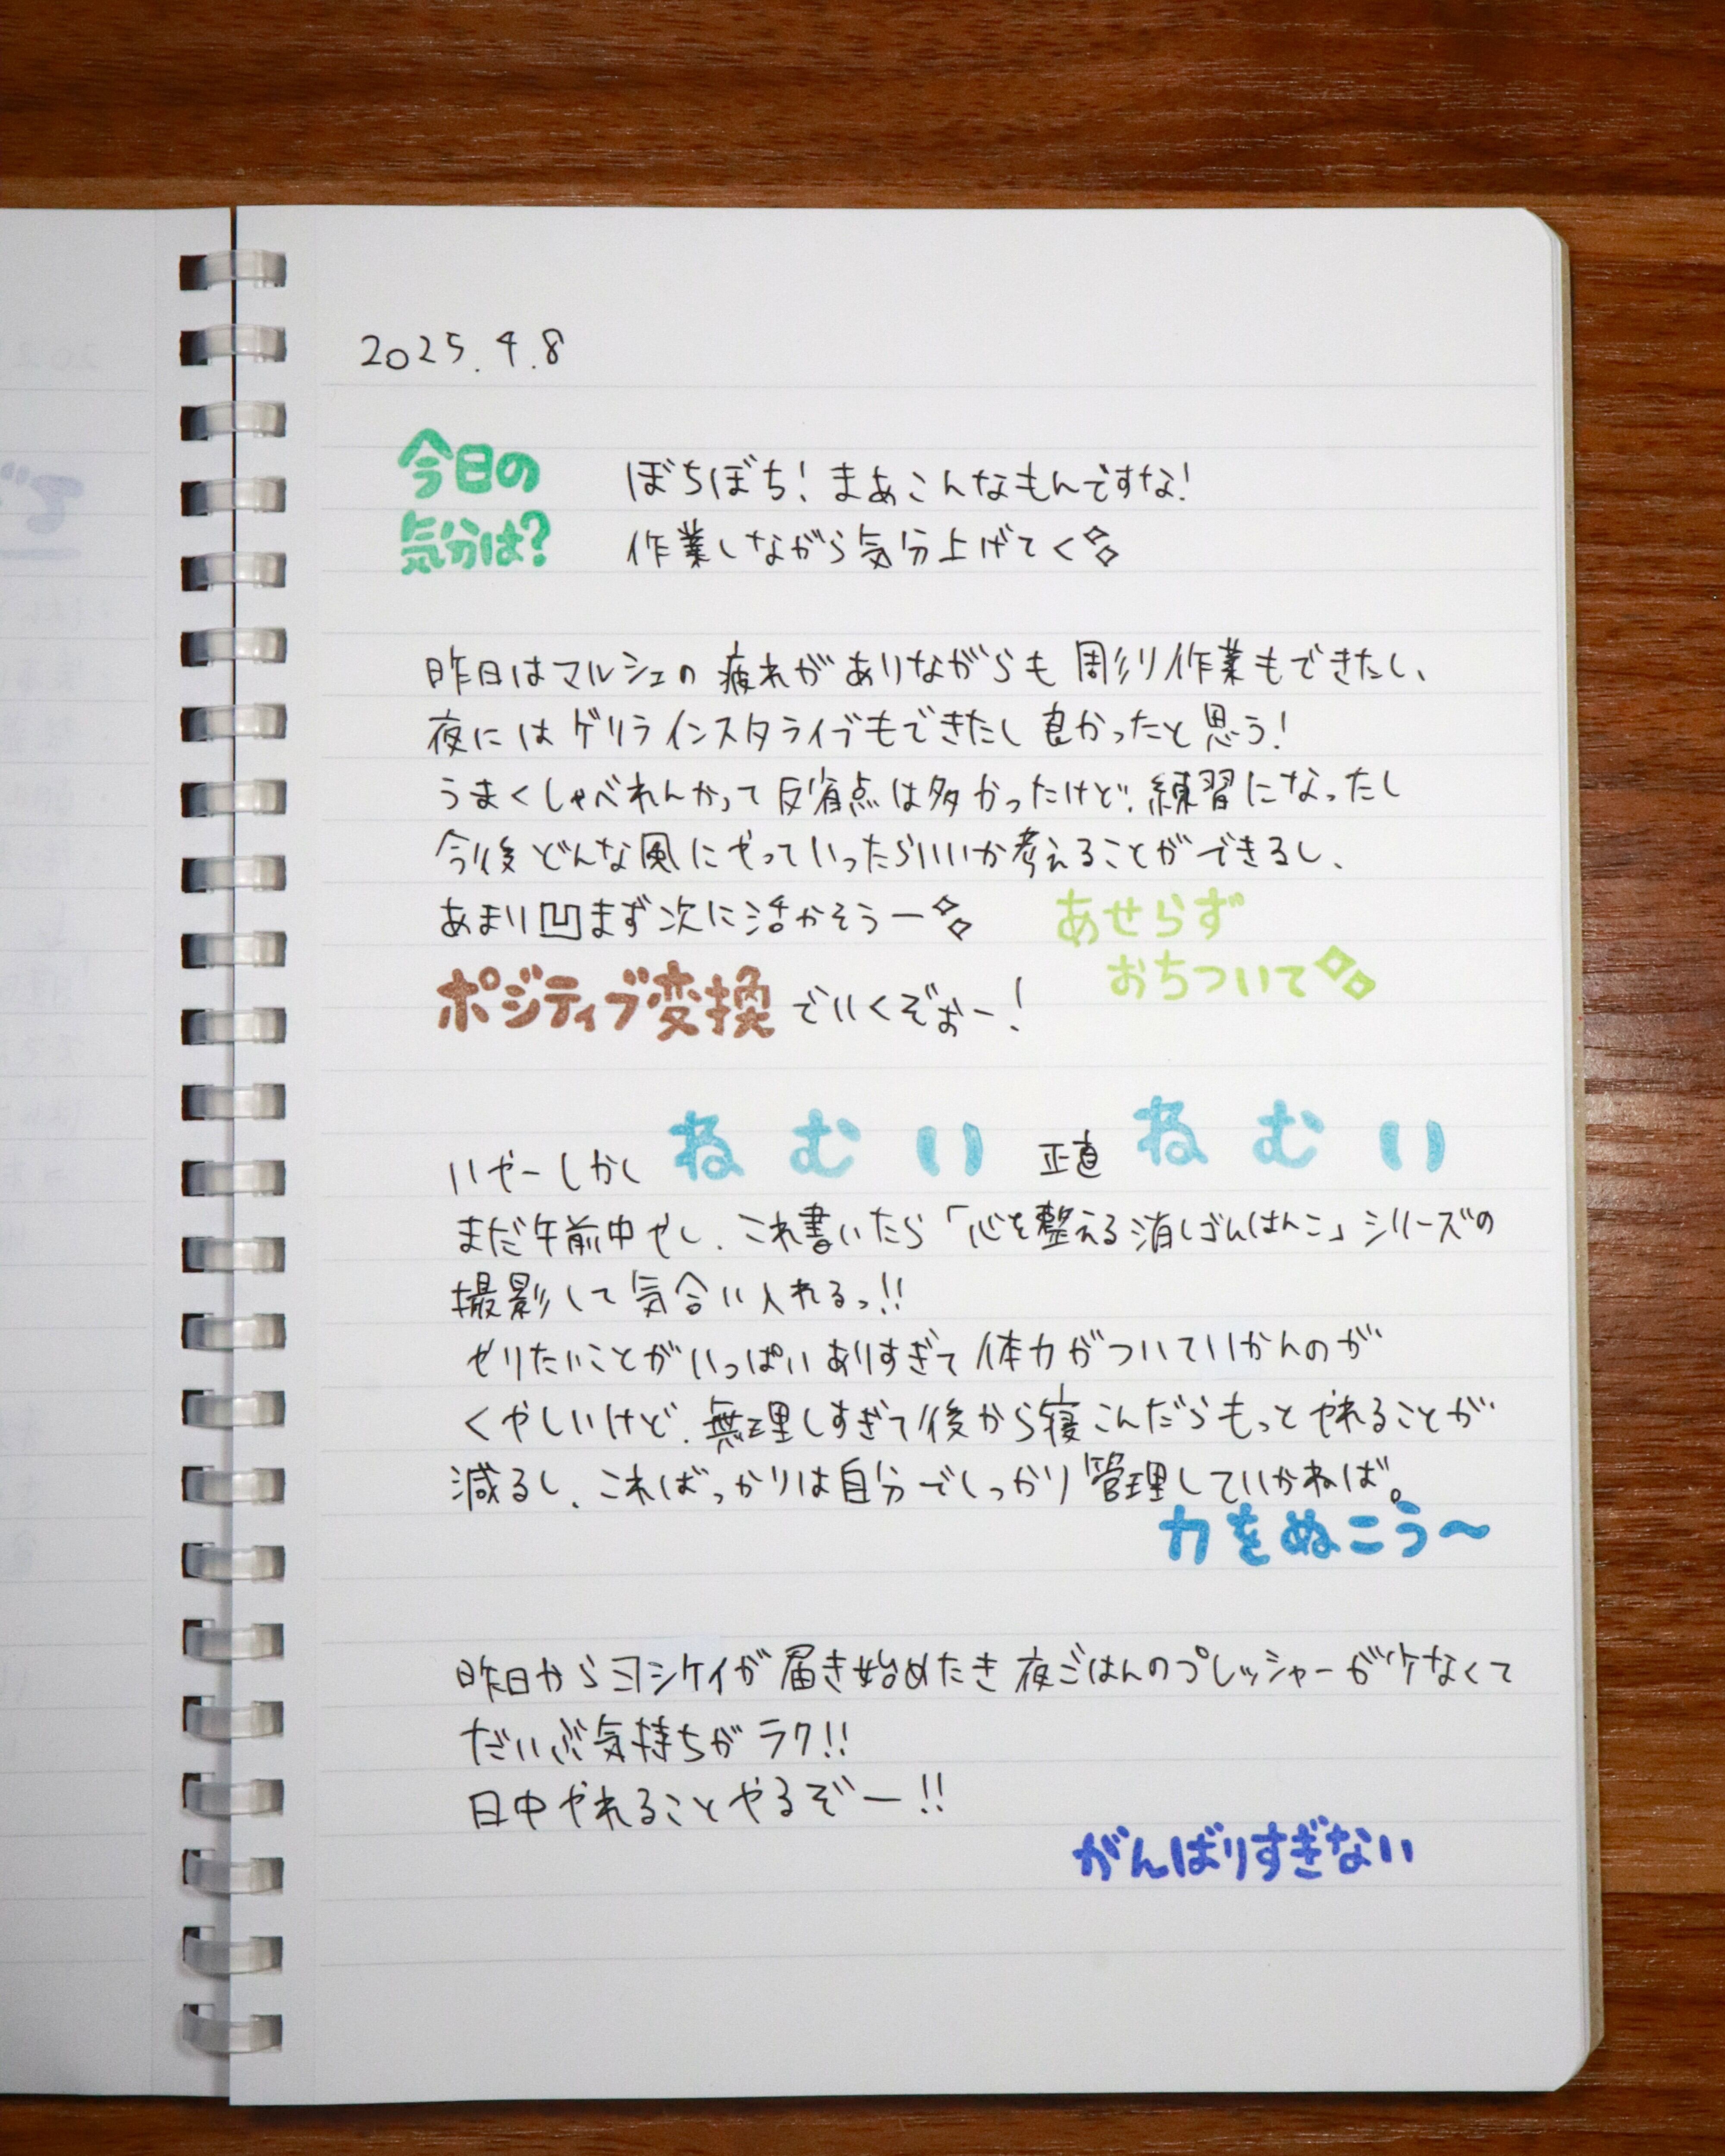 2025.4.8
今日の
気分は?
ぼちぼち!まあこんなもんですな!
作業しながら気分上げてく
昨日はマルシェの疲れがありながらも彫り作業もできたし、
夜にはゲリラインスタライブもできたし良かったと思う!
うまくしゃべれんかって反省点は多かったけど、練習になったし
今後どんな風にやっていったらいいか考えることができるし、
あまり凹まず次に活かそうー
あせらず
おちついて
ポジティブ変換でいくぞぉー!
いやーしかし ねむい 正直 ねむい
まだ午前中やし、これ書いたら「心を整える消しゴムはんこ」シリーズの
撮影して気合い入れるっ!!
やりたいことがいっぱいありすぎて体力がついていかんのが
くやしいけど、無理しすぎて後から寝こんだらもっとやれることが
減るし、こればっかりは自分でしっかり管理していかねば。
力をぬこう〜
昨日からヨシケイが届き始めたき夜ごはんのプレッシャーが少なくて
だいぶ気持ちがラク!!
日中やれることやるぞー!!
がんばりすぎない